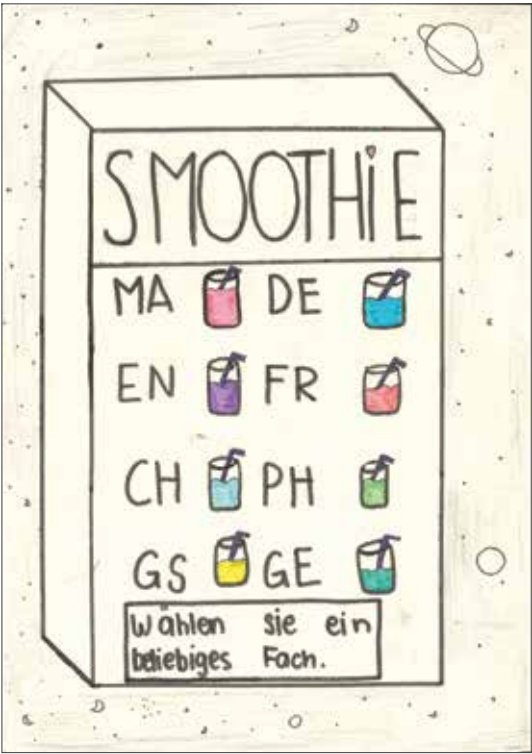 SMOOTHiE
MA DE
EN FR
CH PH
GS GE
Wählen sie ein
beliebiges Fach.